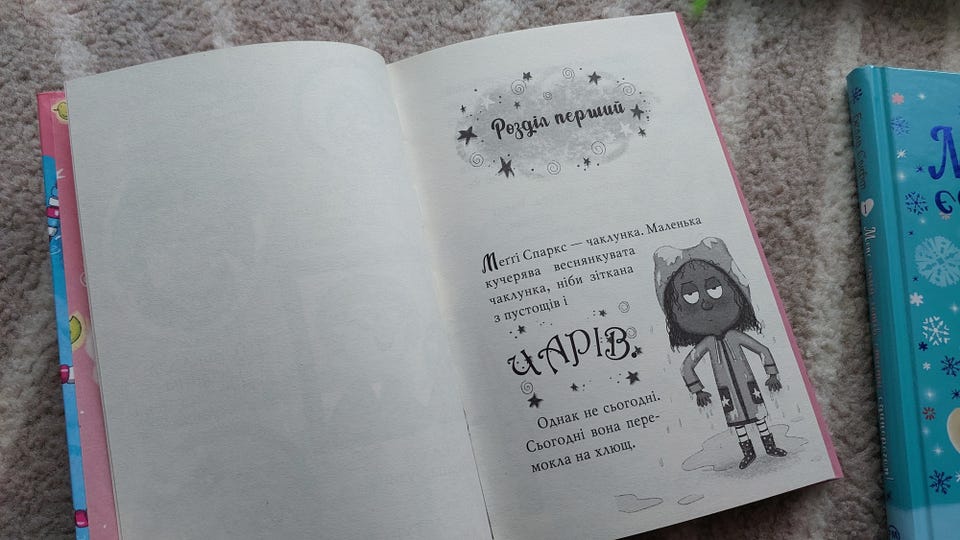 Розділ перший
Меґґі Спаркс — чаклунка. Маленька
кучерява веснянкувата
чаклунка, ніби зіткана
з пустощів і
ЧАРІВ.
Однак не сьогодні.
Сьогодні вона пере-
мокла на хлющ.